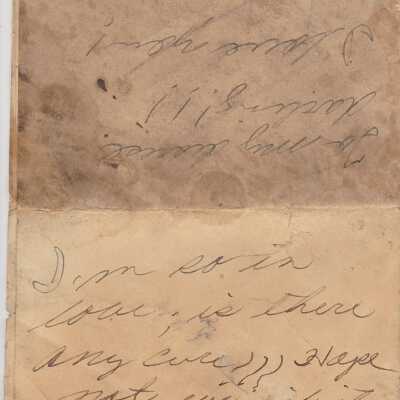 To my
darling!!!
I love you!
I'm so in
love, is there
any cure ??? Hope
not